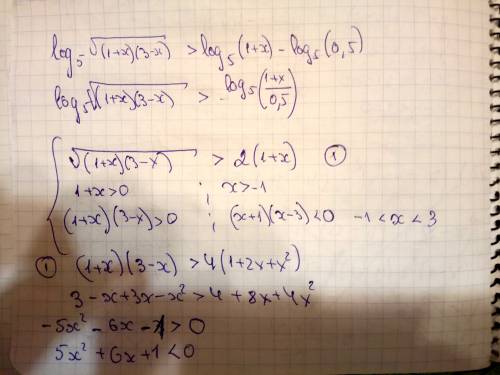 log₅√((1+x)(3-x)) > log₅(1+x) - log₅(0,5)
log₅√((1+x)(3-x)) > log₅((1+x)/0,5)
√((1+x)(3-x)) > 2(1+x) ①
1+x>0 ; x>-1
(1+x)(3-x)>0 ; (x+1)(x-3)<0 -1<x<3
① (1+x)(3-x)>4(1+2x+x²)
3-x+3x-x²>4+8x+4x²
-5x²-6x-1>0
5x²+6x+1<0